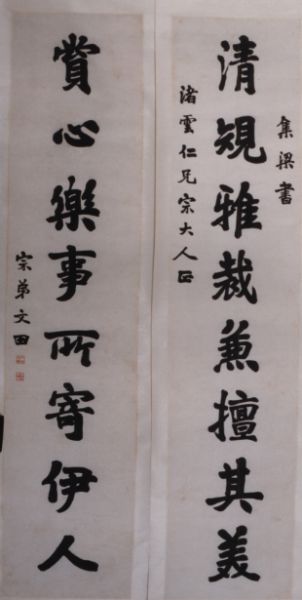 集梁書
清規雅裁兼擅其美
渚雲仁兄宗大人正
賞心樂事所寄伊人
宗弟文田